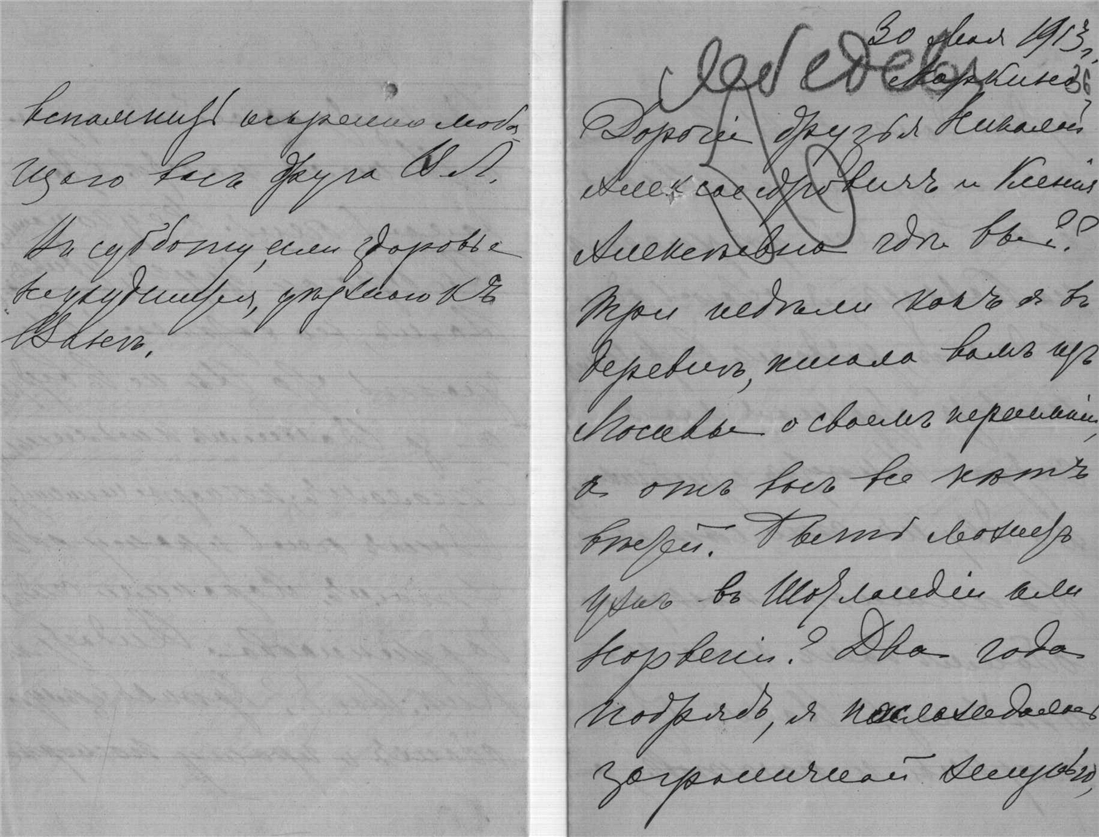 вспомнить искренно любя
щаго васъ друга А Л.
Въ субботу, если здоровье
не ухудшится, уѣзжаю къ
Ванѣ.
Лебедева
30 мая 1913 г.
Маркино
36
Дорогіе друзья Николай
Александровичъ и Ксенія
Алексѣевна гдѣ вы??
Три недѣли какъ я въ
деревнѣ, писала вамъ изъ
Москвы о своемъ
а отъ васъ все нѣтъ
вѣстей. Быть можетъ
уже въ Шотландіи или
Норвегіи? Два года
подрядъ, я наслаждалась
заграничной